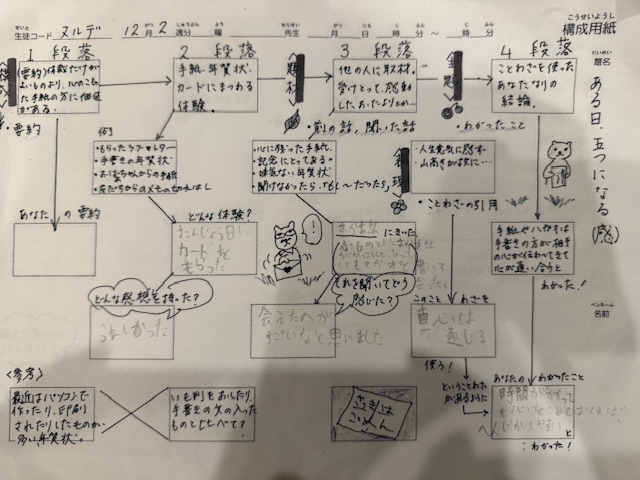 こうせいようし
構成用紙
せいと
生徒コード ヌルデ 12月2週分 曜 先生 月 日 時 分～ 時 分
だいめい
題名
ある日、五つになる(感)
ペンネーム
名前
1 段落
(要約)体裁だけが
よいものより、心のこもっ
た手紙の方に価値
がある。
・要約
あなたの要約
2 段落
手紙、年賀状、
カードにまつわる
体験。
例
・もらったラブレター
・手書きの年賀状
・おばあちゃんからの手紙
・友だちからのメモのきれはし
どんな体験?
たんじょう日に
カードを
もらった
どんな感想を持った?
うれしかった
題材
3 段落
他の人に取材。
受けとって、感動
したおたよりとか…
・前の話、聞いた話
・心に残った手紙
・記念にとってある
・味気ない年賀状
・聞けなかったら、「もし～だったら」
表現
にきいた
それを聞いてどう
感じた?
会えた人が
すごいなと思いました
主題
4 段落
ことわざを使った
あなたなりの
結論。
・わかったこと
・人生意気に感ず
・山高きが故に…
・ことわざの引用
このことわざを
真心は
通じる
使う!
ということわざ
があるように
手紙やハガキは
手書きの方が相手
の心が伝わってきて
心が通い合うと
わかった!
あなたのわかったこと
時間がかかって
と
わかった!
<参考>
最近はパソコンで
作ったり、印刷
されたりしたものが
多い年賀状。
いも判をおしたり、
手書きの文の入った
ものとくらべて?